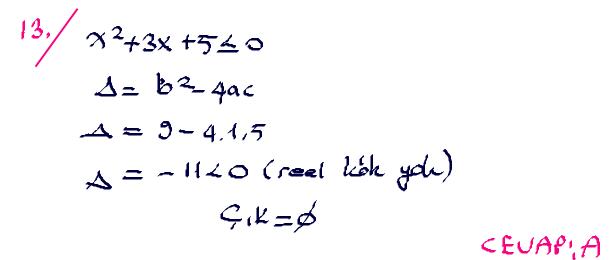 13./ x²+3x+5≤0
Δ= b²-4ac
Δ = 9-4.1.5
Δ = -11<0 (reel kök yok)
Ç.K=∅
CEVAP: A